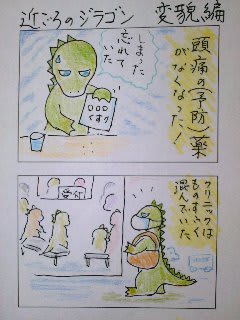 近ごろのジラゴン 変貌編
頭痛の(予防)薬
がなくなった!
しまった
忘れて
いた
〇〇〇
くすり
クリニックは
ものすごく
混んでいた
受付